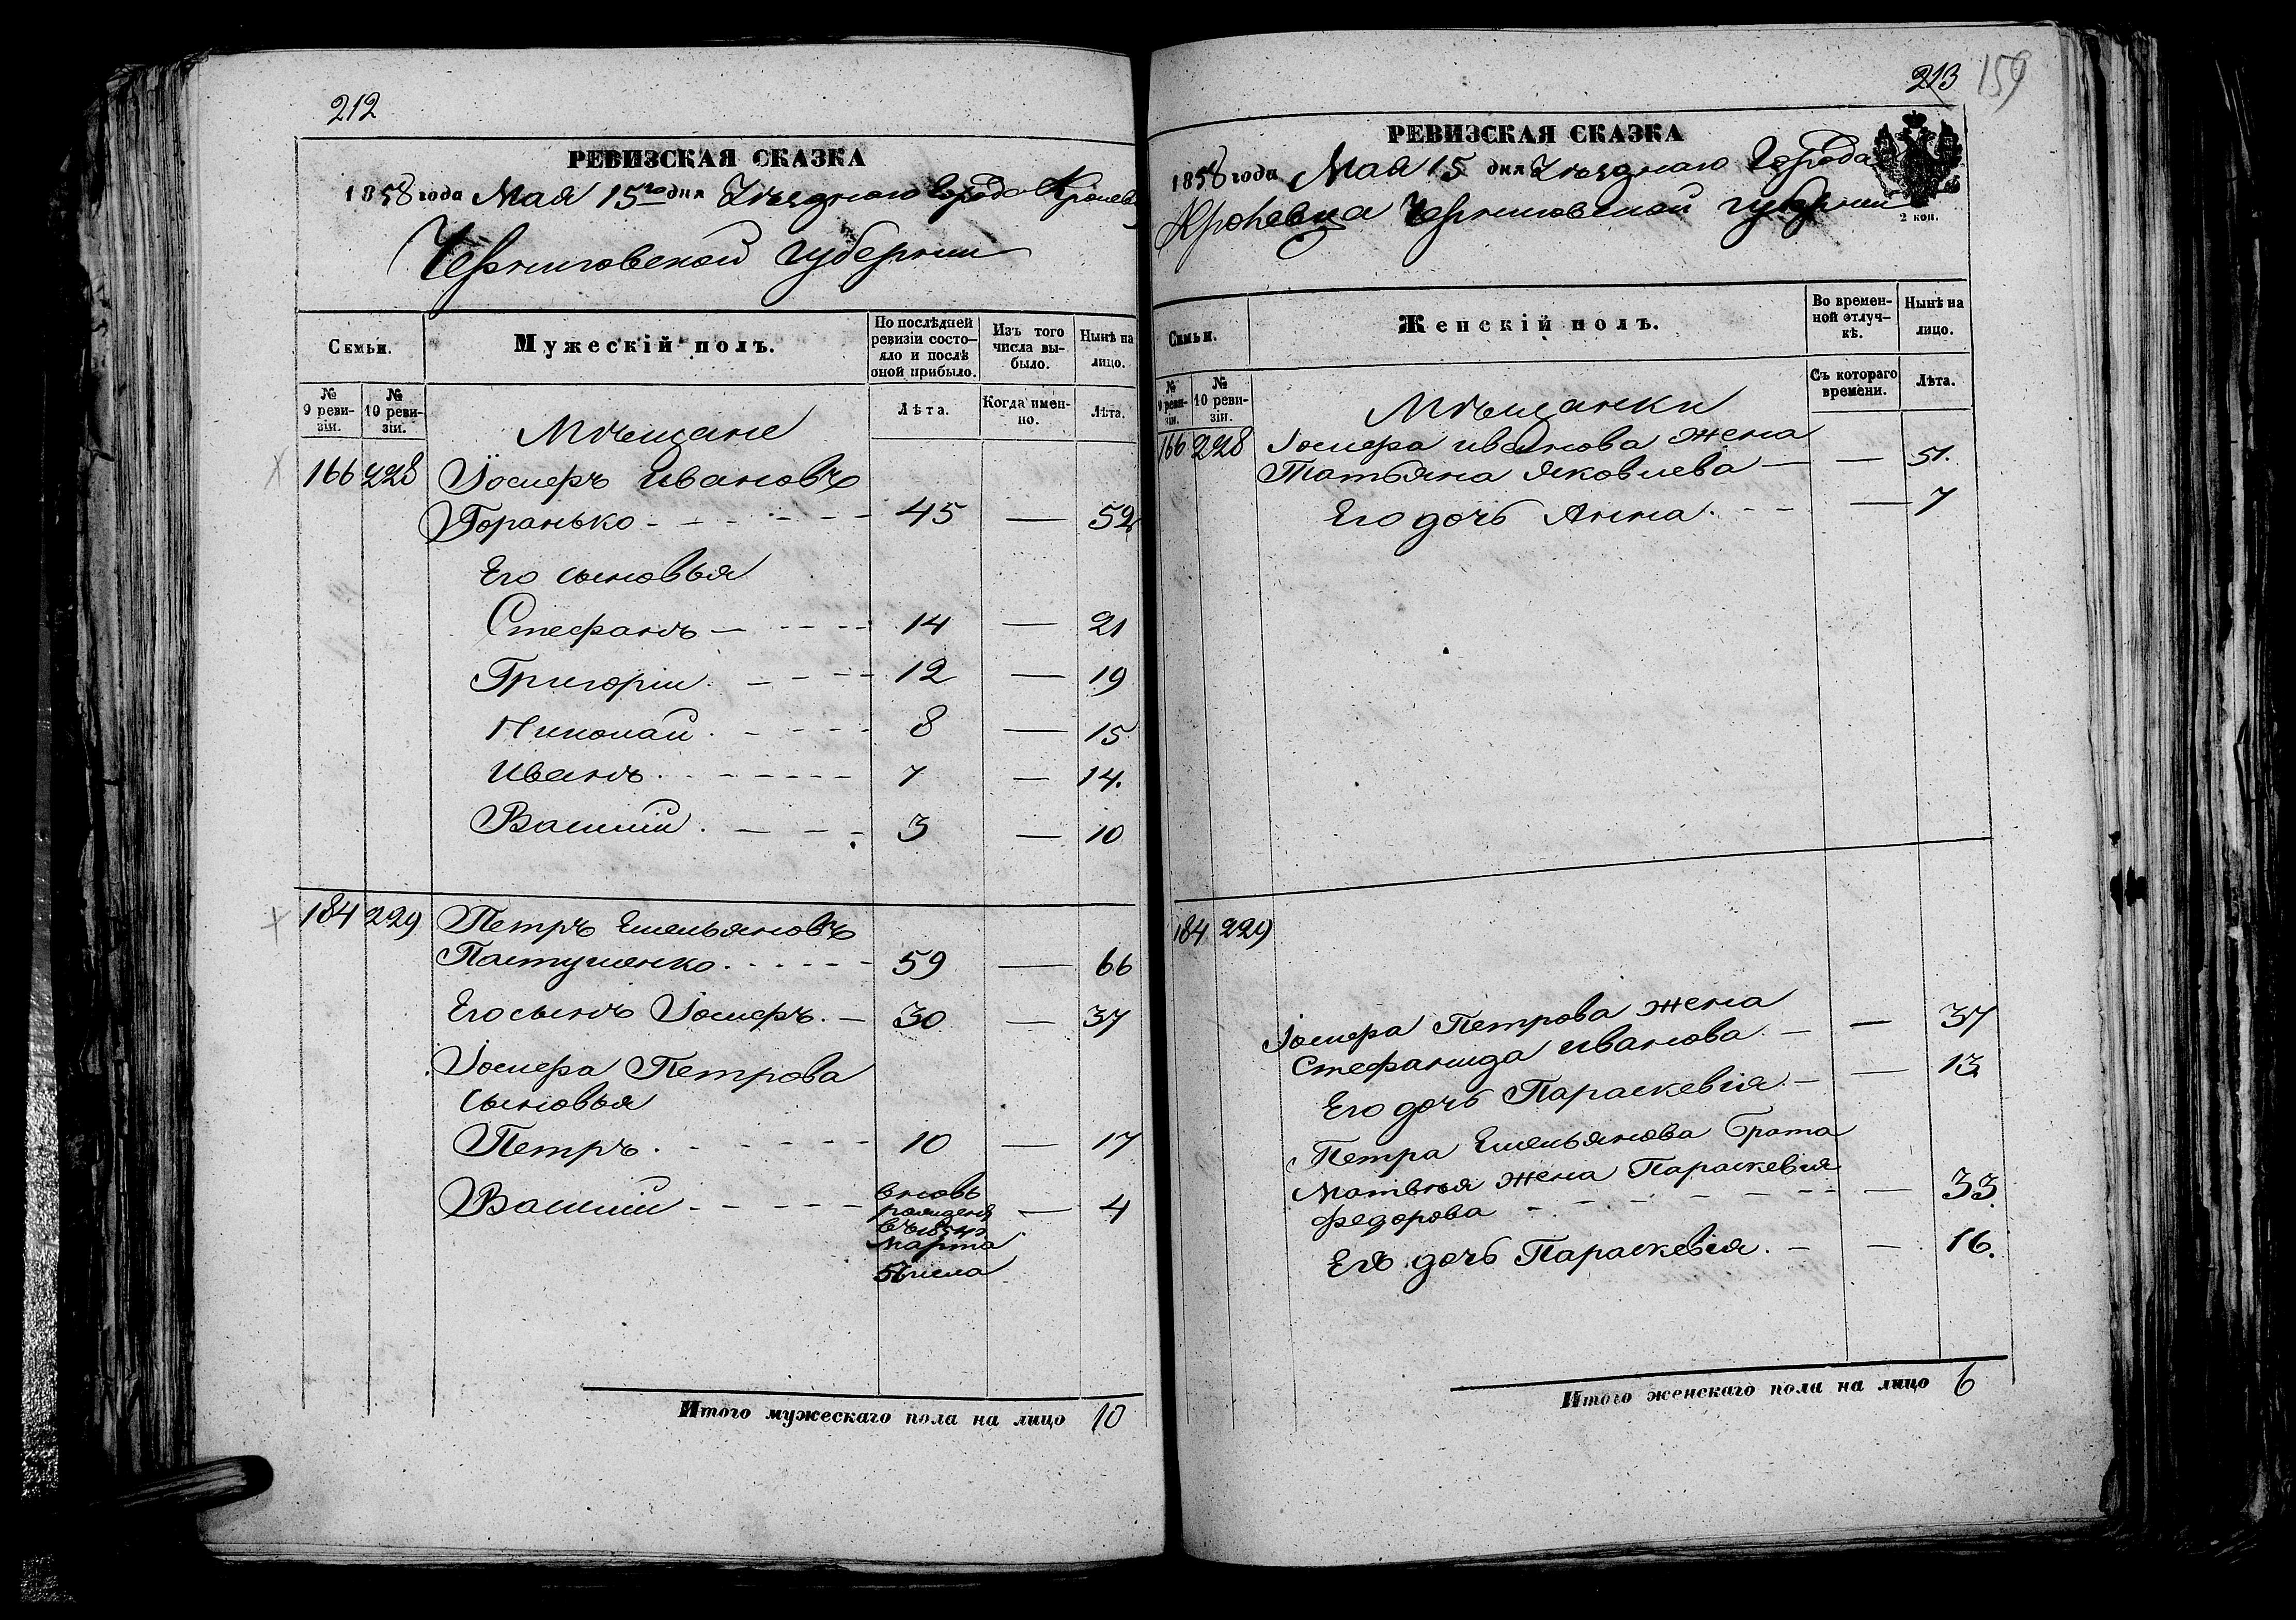 212
РЕВИЗСКАЯ СКАЗКА
1858 года Мая 15го дня Уѣзднаго Города Кролевц
Черниговской губернии
Семьи.
Мужескій полъ.
По послѣдней ревизіи состо-
яло и послѣ
оной прибыло.
Изъ того
числа вы-
было.
Нынѣ на
лицо.
№
9 реви-
зіи.
№
10 реви-
зіи.
Лѣта.
Когда имен-
но.
Лѣта.
Мѣщане
166 228 Іосифъ Ивановъ
Горанько 45 — 52
Его сыновья
Стефанъ — 14 — 21
Григорій 12 — 19
Николай 8 — 15
Иванъ 7 — 14.
Василій 3 — 10
184 229 Петръ Емельяновъ
Пастушенко 59 — 66
Его сынъ Іосифъ. — 30 — 37
Іосифа Петрова
сыновья
Петръ 10 — 17
Василій вновь — 4
рожденъ
въ 1854 г.
Марта
5 числа
Итого мужескаго пола на лицо 10
213 159
РЕВИЗСКАЯ СКАЗКА
1858 года Мая 15 дня Уѣзднаго Города
Кролевца Черниговской губернии
2 коп.
Семьи.
Женскій полъ.
Во времен-
ной отлуч-
кѣ.
Нынѣ на
лицо.
№
9 реви-
зіи.
№
10 реви-
зіи.
Съ котораго
времени.
Лѣта.
Мѣщанки
166 228 Іосифа Иванова жена
Татьяна Яковлева — — 51.
Его дочь Анна. — 7
184 229
Іосифа Петрова жена
Стефанида Иванова — — 37
Его дочь Параскевія. — — 13
Петра Емельянова брата
Матвѣя жена Параскевія
Федорова — 33.
Его дочь Параскевія. — — 16.
Итого женскаго пола на лицо 6